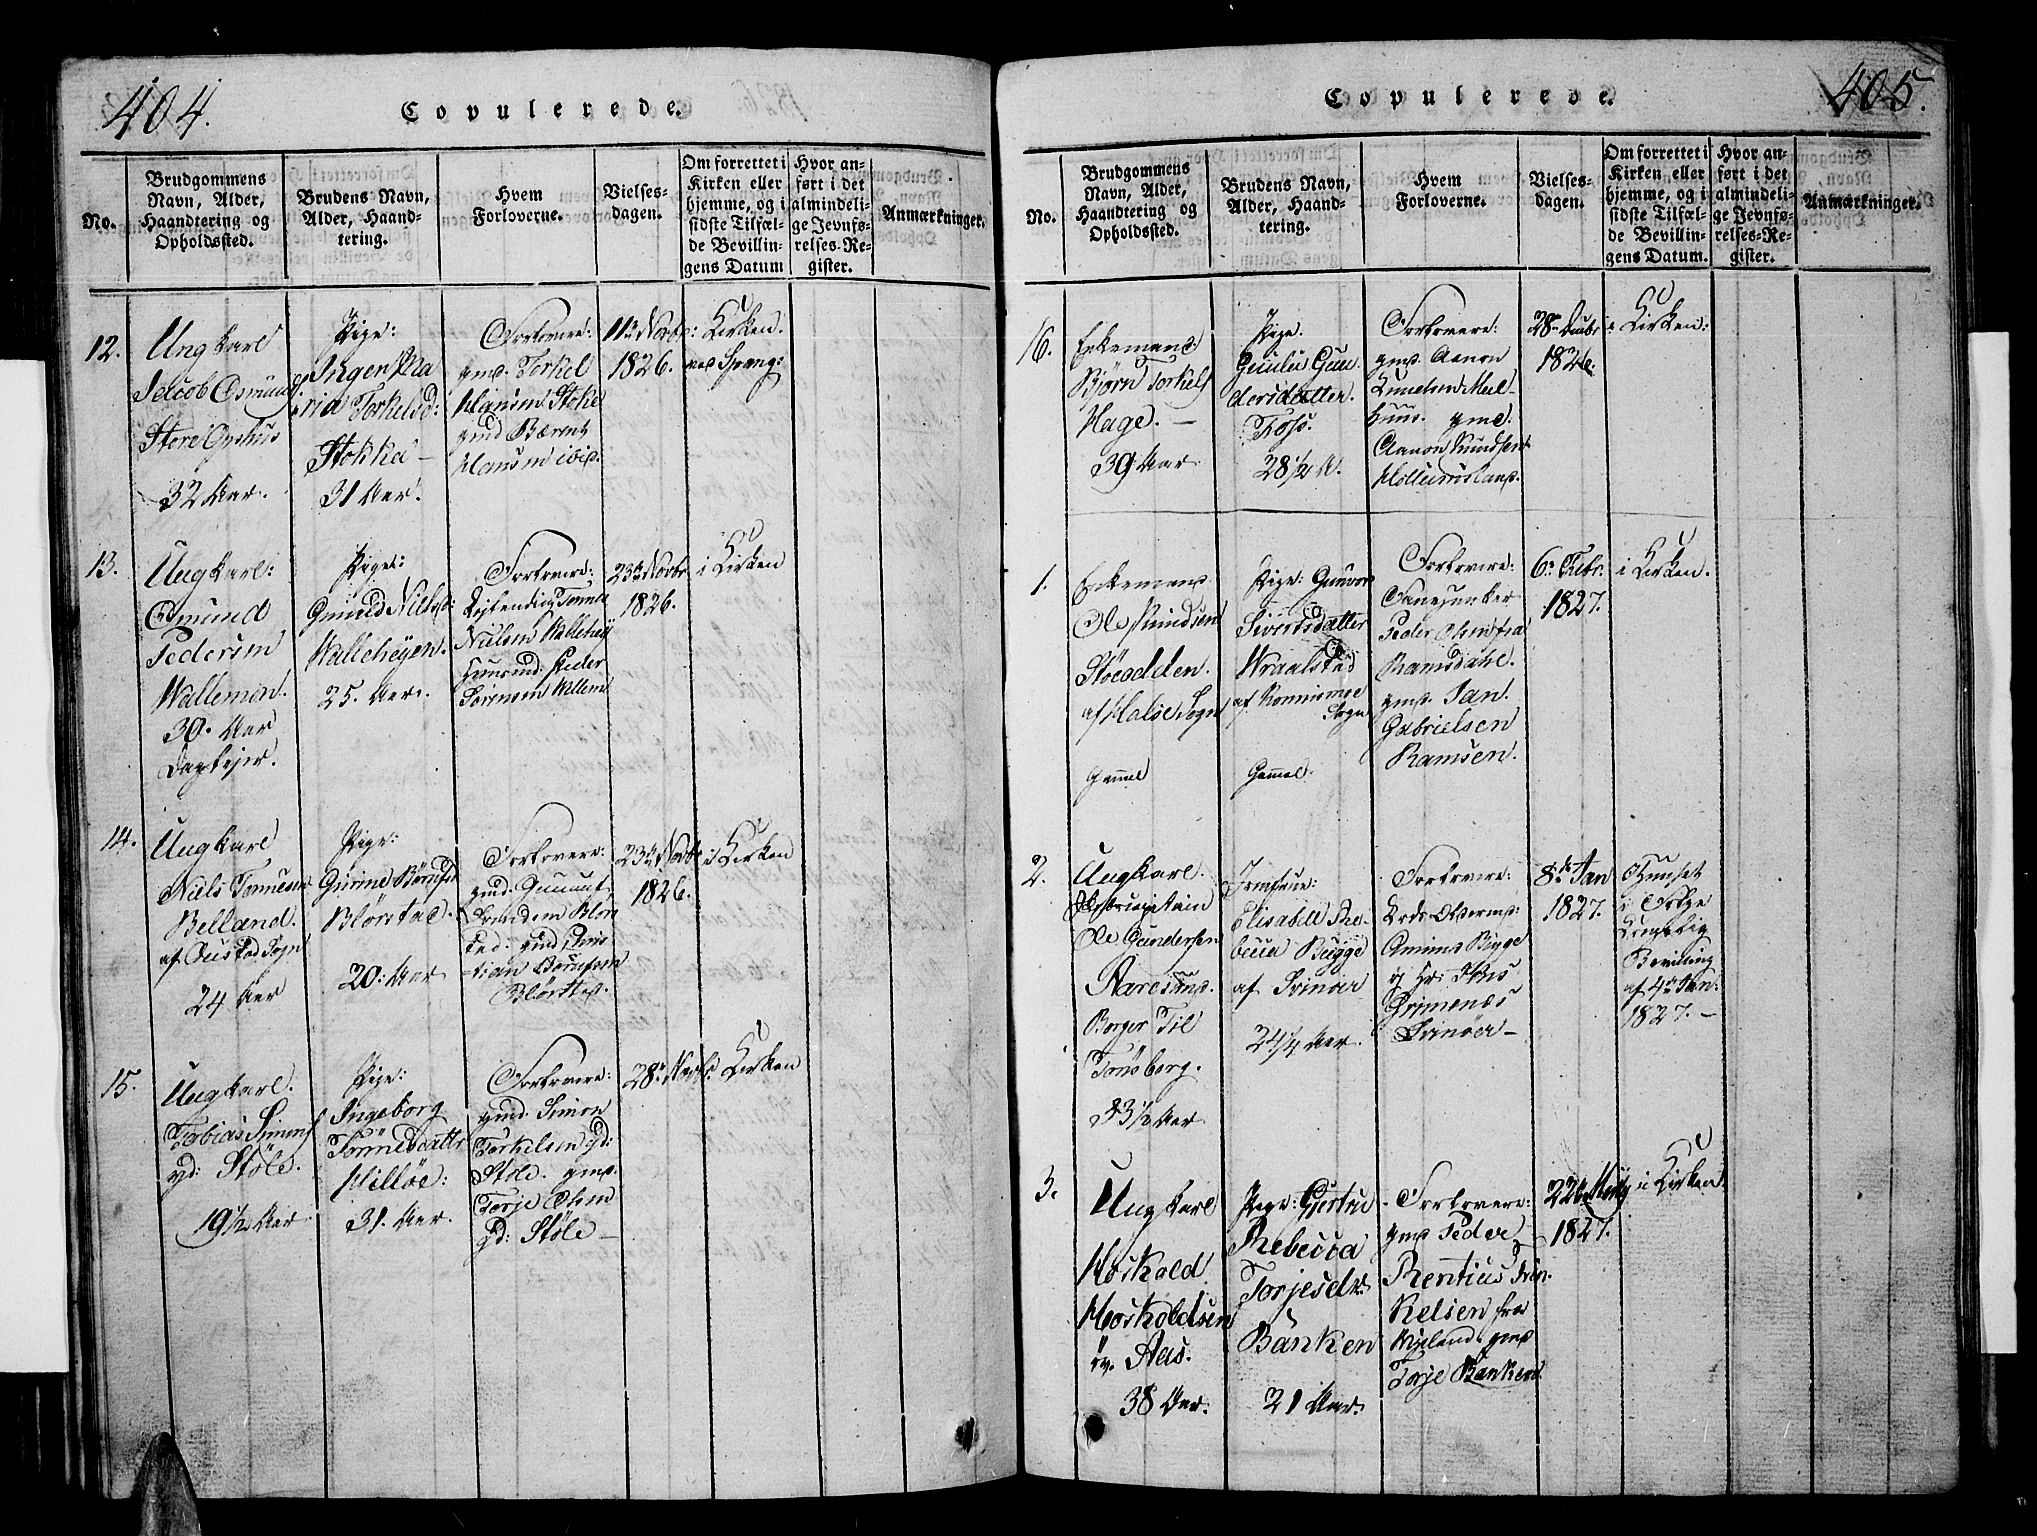 404.
Copulerede.
No.
Brudgommens
Navn, Alder,
Haandtering og
Opholdssted.
Brudens Navn,
Alder, Haand-
tering.
Hvem
Forloverne.
Vielses-
dagen.
Om forrettet i
Kirken eller
hjemme, og i
sidste Tilfæl-
de Bevillin-
gens Datum
Hvor an-
ført i det
almindeli-
ge Jevnfø-
relses-Re-
gister.
Anmærkninger.
12.
Ungkarl
Jacob Osmunds
Store Opshus
32 Aar.
Pige:
Ingen Ma
ria Torkelsd:
Stokka -
31 Aar.
Forlovere:
gmd. Torkel
Hansen Stokke
gmd Bærent
Hansen ibid.
11te Novbr:
1826.
Kirken.
13.
Ungkarl:
Osmund
Pedersen
Wallemon.
30. Aar
Pige:
Gunild Nielsd:
Walleheyen.
25. Aar.
Forlovere:
Tønnes
Nielsen Wallehey
Huusmd: Peder
Sørensen
23de Novbr
1826.
i Kirken
14.
Ungkarl
Niels Tønnesen
Belland.
af Oustad Sogn
24 Aar
Pige:
Gurine Børufsd
Blørstad.
20: Aar
Forlovere:
gmd: Gunuuf
Blør
sted: gmd Chris
tian Børufsen
Blørsted.
23de Novbr
1826.
i Kirken
15.
Ungkarl.
Tobias Simens
gd: Støle.
19 1/2 Aar
Pige:
Ingeborg
Tønnesdatter
Hilløe:
31. Aar.
Forlovere:
gmd. Simon
Torkelsen gd:
Støle. gmd.
Torje Olsen
gd: Støle -
28de Novbr.
Kirken
405.
Copulerede.
No.
Brudgommens
Navn, Alder,
Haandtering og
Opholdssted.
Brudens Navn,
Alder, Haand-
tering.
Hvem
Forloverne.
Vielses-
dagen.
Om forrettet i
Kirken eller
hjemme, og i
sidste Tilfæl-
de Bevillin-
gens Datum.
Hvor an-
ført i det
almindeli-
ge Jevnfø-
relses-Re-
gister.
Anmærkninger.
16.
Enkemand.
Bjørn Torkels
Hage. -
39 Aar
Pige.
Gunlu Gun
dersdatter.
Foss.
28 1/2 A.
Forlovere:
gmd. Aanon
gmd.
Aanon Knudsen
28de Decbr
1826:
i Kirken:
1.
Enkemand
Ole Knudsen
Støodden.
af Halse Sogn
gammel
Pige: Gunvor
Sivertsdatter
Wraalstad
Sogn
Gammel.
Forlovere:
Peder Olsen fra
Ramsdahl.
gmd. Jan
Gabrielsen
Ramsen.
6te Febr.
1827.
i Kirken.
2.
Ungkarl.
Skibscapitain
Ole Gundersen
Aarøsund.
Borger Til
Tønsberg.
33 1/2 Aar
Jomfrue:
Elisabeth Re-
becca Bugge
af Svinøer
24 1/4 Aar.
Forlovere:
Bugge
og Hr:
Grimenæs
Svinøer -
8de Jan
1827.
i Huuset
i Følge
Kongelig
Bevilling
af 4de Jan:
1827. -
3.
Ungkarl
Hoskold
Hoskoldsen
øv. Aas.
38 Aar.
Pige: Gjertru
Rebecca
Torjesdtr.
Bänken
21 Aar.
Forlovere:
gmd Peder
Rentius Tron
kelsen fra
gmd
Torje Banken
22de
1827.
i Kirken